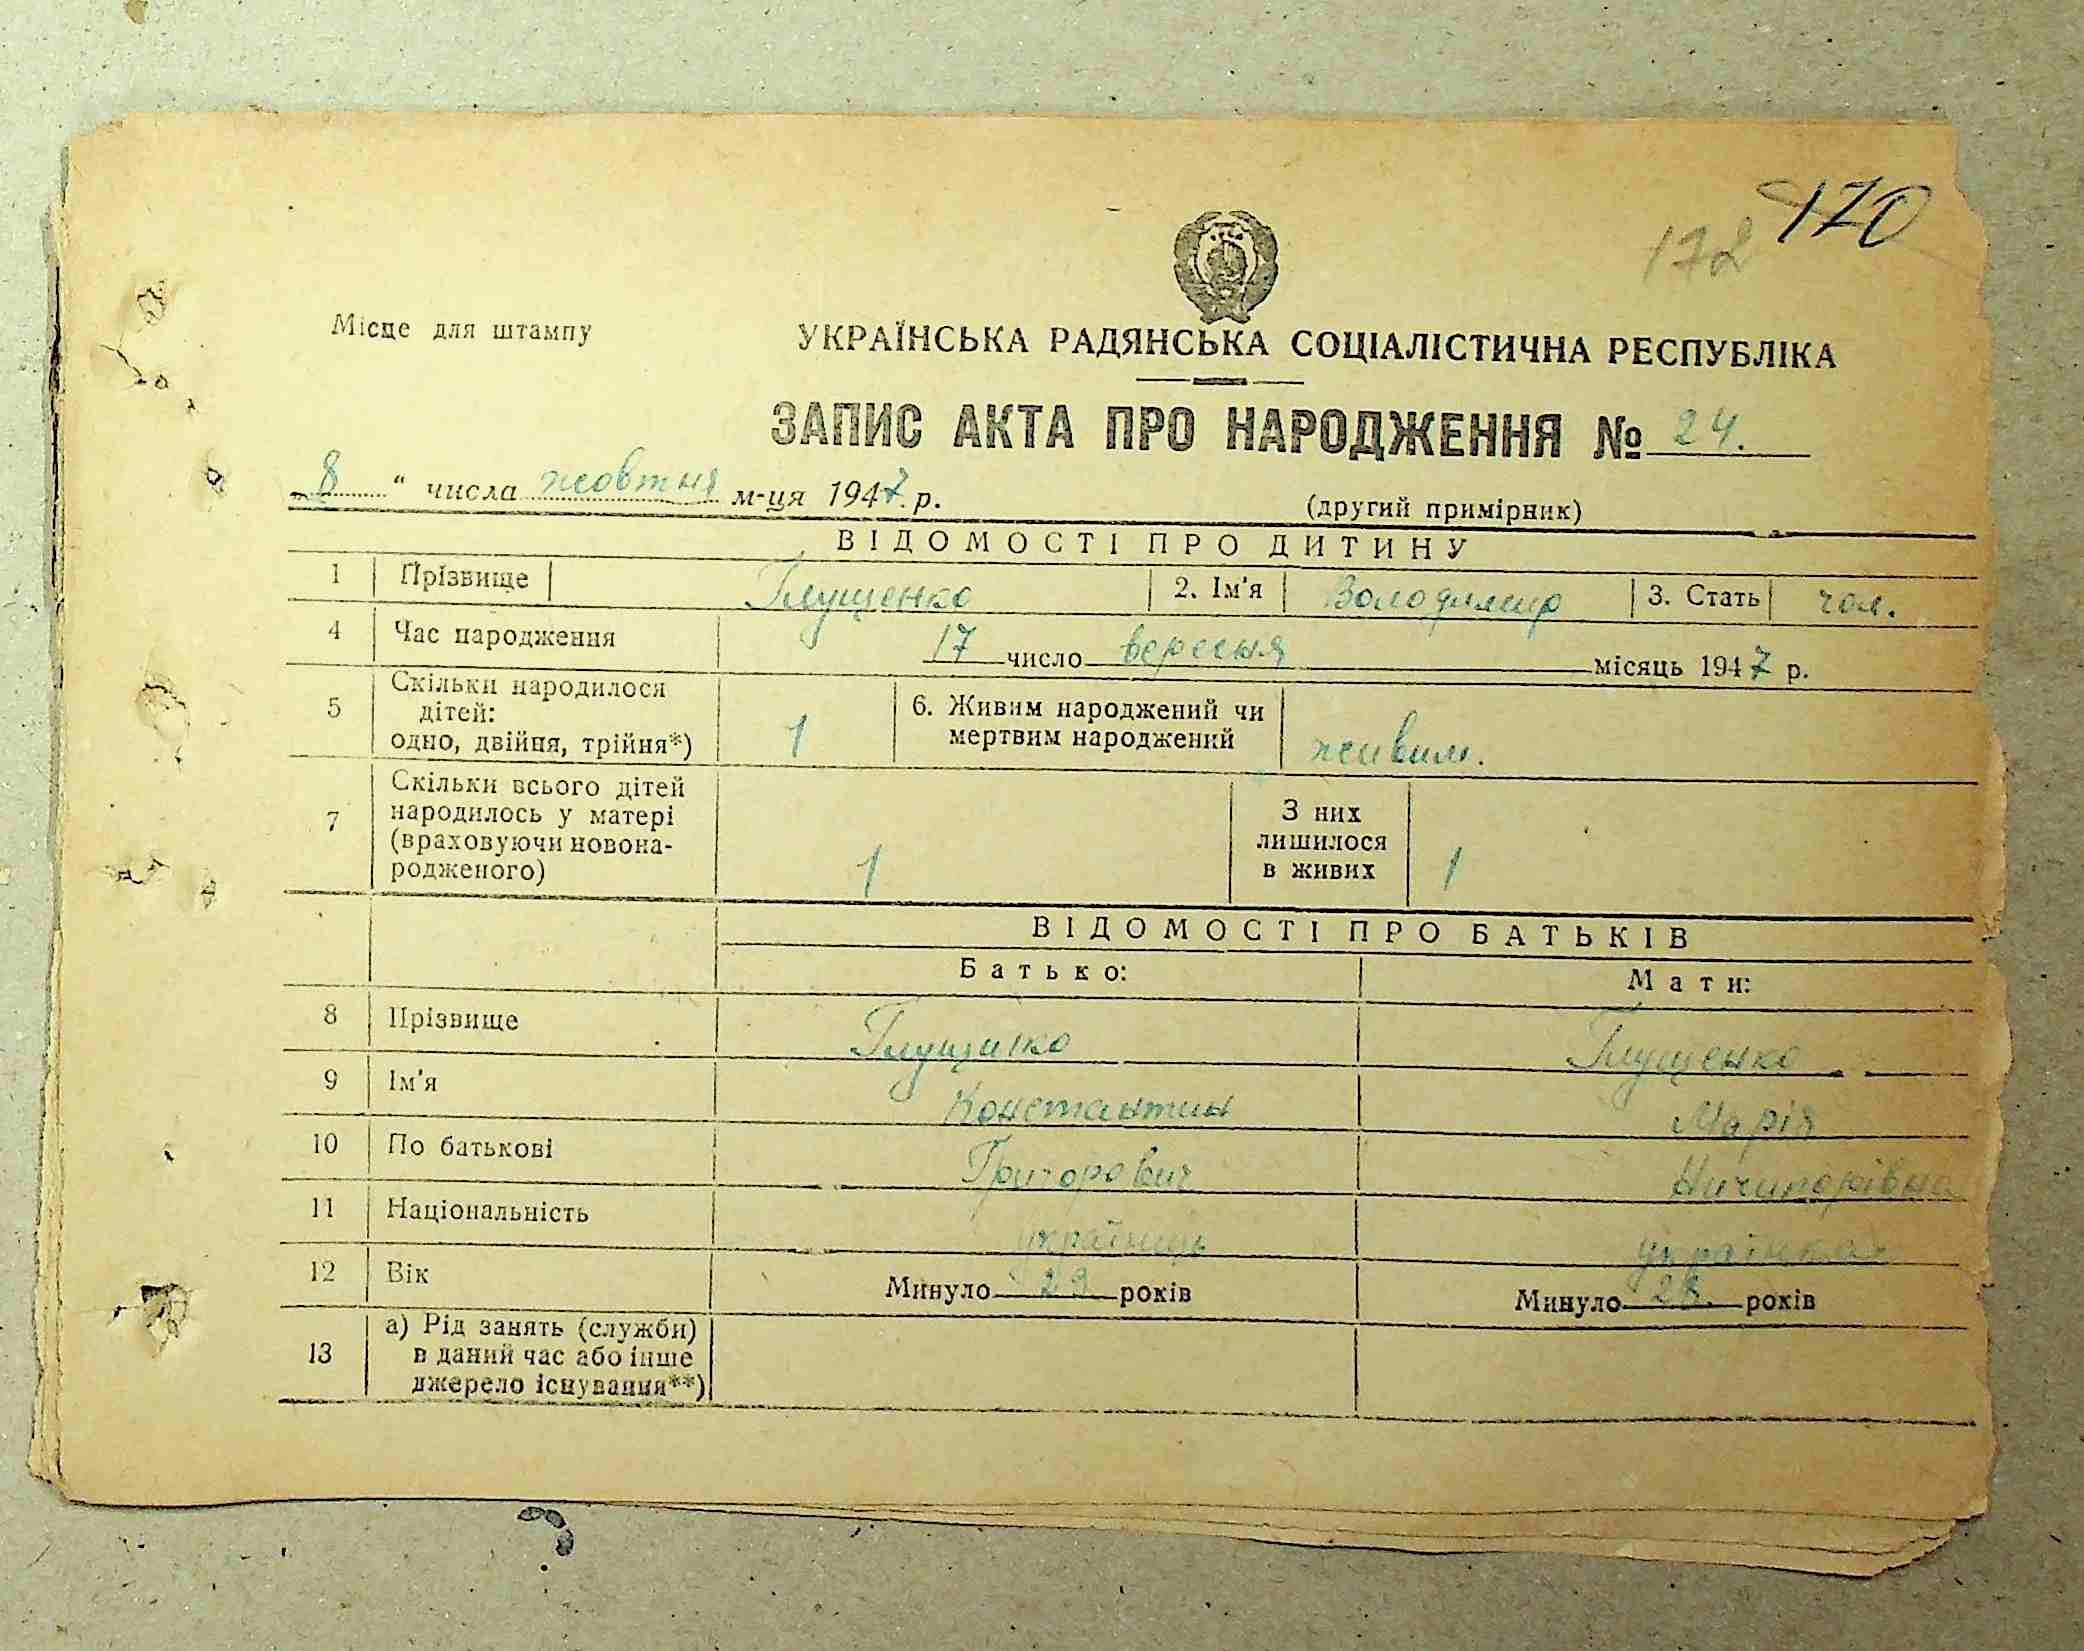 170
172
Місце для штампу
УКРАЇНСЬКА РАДЯНСЬКА СОЦІАЛІСТИЧНА РЕСПУБЛІКА
ЗАПИС АКТА ПРО НАРОДЖЕННЯ № 24.
8 " числа жовтня м-ця 1947 р.
(другий примірник)
ВІДОМОСТІ ПРО ДИТИНУ
1 Прізвище Глущенко 2. Ім'я Володимир 3. Стать чол.
4 Час народження 17 число вересня місяць 1947 р.
5 Скільки народилося дітей: одно, двійня, трійня*) 1 6. Живим народжений чи мертвим народжений живим.
7 Скільки всього дітей народилось у матері (враховуючи новонародженого) 1 З них лишилося в живих 1
ВІДОМОСТІ ПРО БАТЬКІВ
Батько: Мати:
8 Прізвище Глущенко Глущенко
9 Ім'я Константин Марія
10 По батькові Григорович Ничипорівна
11 Національність українець українка
12 Вік Минуло 29 років Минуло років
13 а) Рід занять (служби) в даний час або інше джерело існування**)